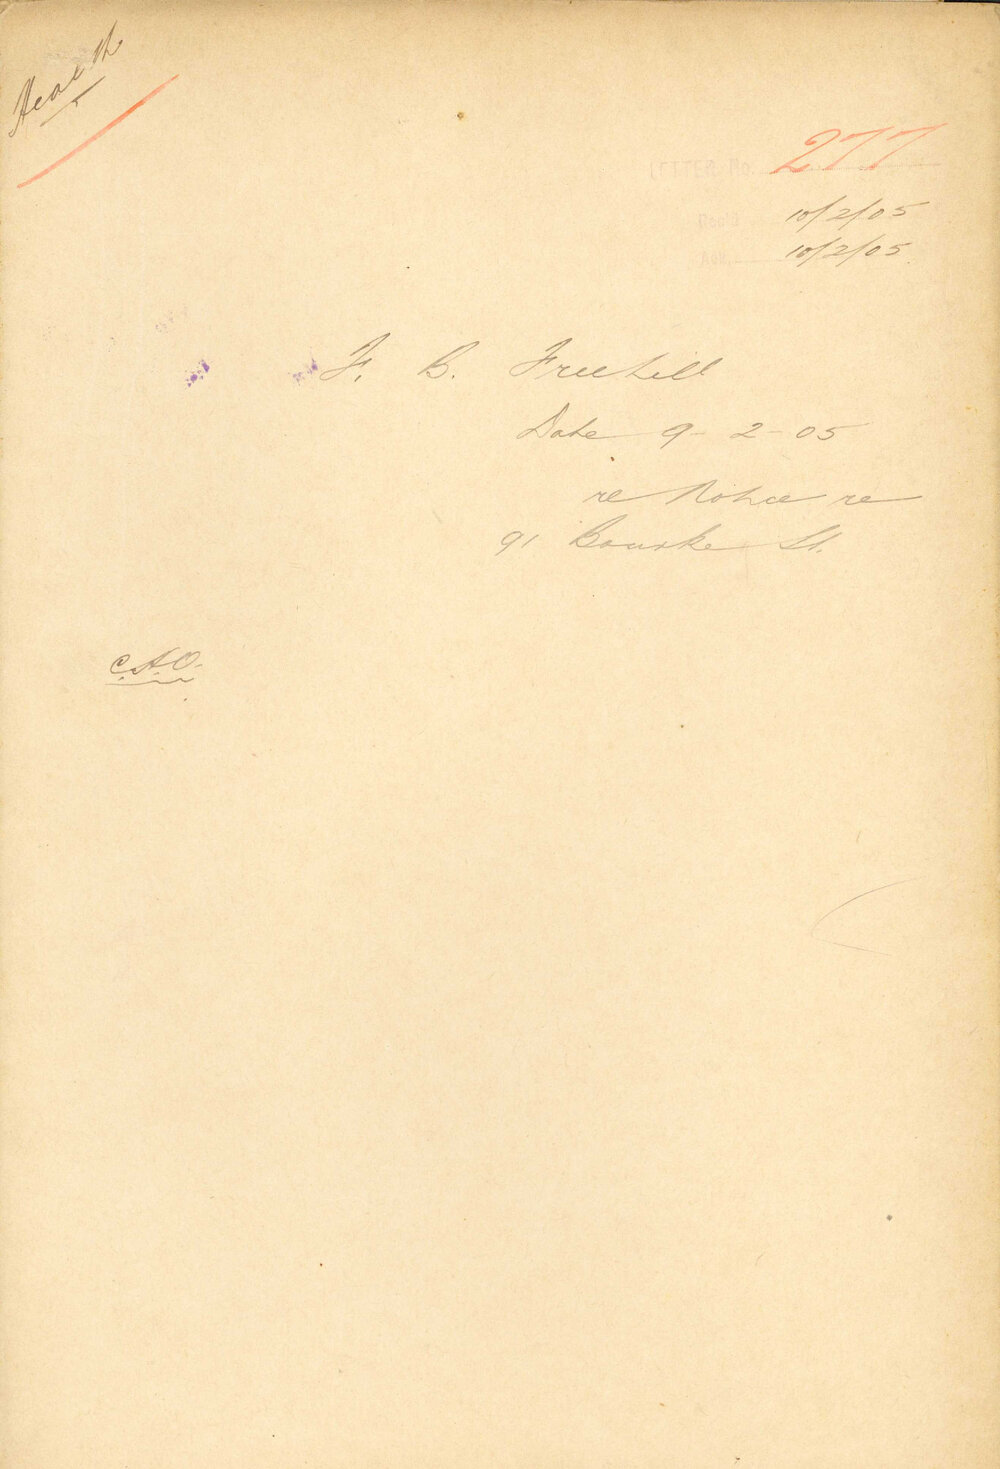 Health
277
10/2/05
10/2/05
F. B. Freehill
Date 9-2-05
re Notice re
91 Bourke St.
C.A.O.